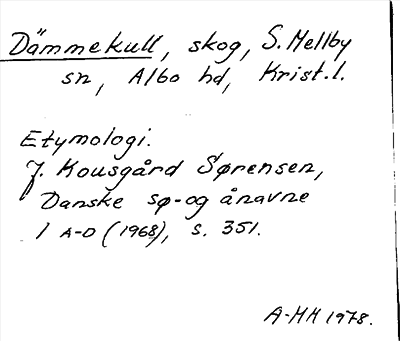 Dämmekull, skog, S. Mellby
sn, Albo hd, Krist. l.
Etymologi.
J. Kousgård Sørensen,
Danske sø- og ånavne
1 A-D (1968), s. 351.
A-MH 1978.